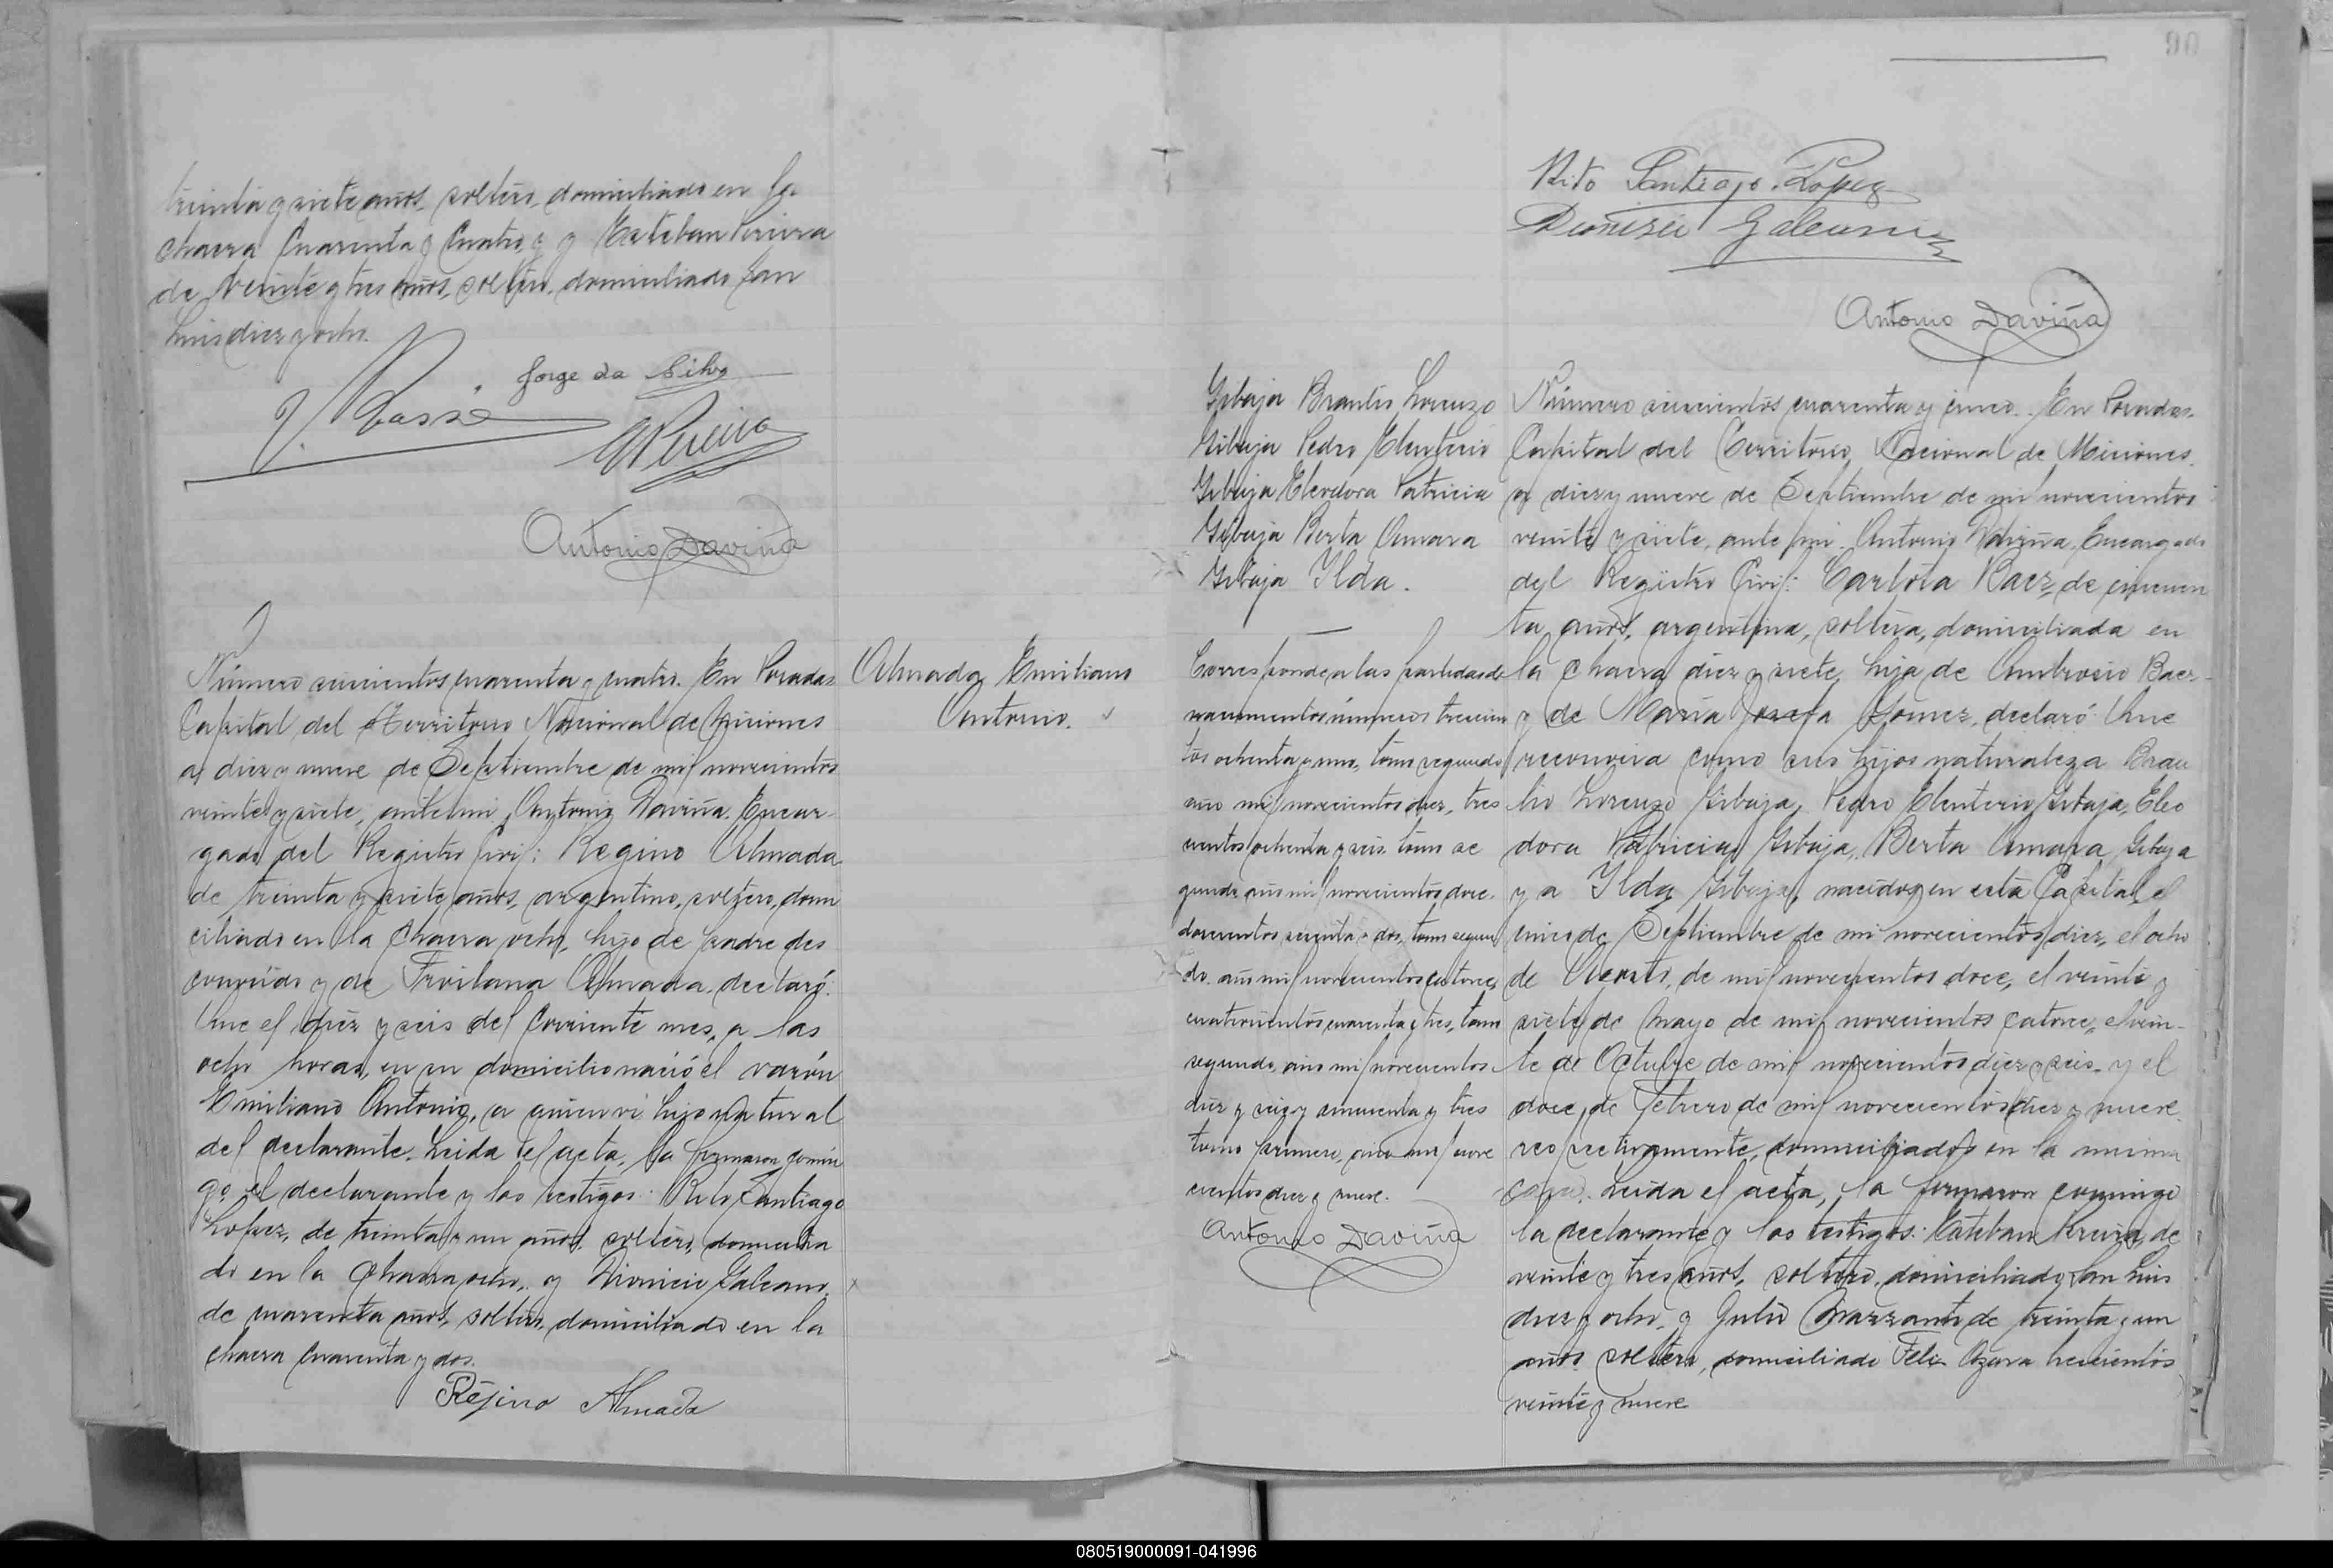 treinta y siete años, soltero, domiciliado en la
chacra Cuarenta y Cuatro, y Esteban Pereira
de veinte y tres años, soltero, domiciliado San
Luis diez y ocho.
Jorge da Silva
Antonio Daviña
Número seiscientos cuarenta y cuatro. En Posadas
Capital del Territorio Nacional de Misiones
a diez y nueve de Septiembre de mil novecientos
veinte y siete, ante mi Antonio Daviña. Encar-
gado del Registro Civil: Regino Almada
de treinta y siete años, argentino, soltero, domi
ciliado en la Chacra ocho, hijo de padre des
conocido y de Froilana Almada, declaró:
Que el diez y seis del corriente mes, a las
ocho horas, en su domicilio nació el varón
Emiliano Antonio, a quien vi hijo natural
del declarante. Leida el acta, la firmaron conmi
go el declarante y los testigos: Rito Santiago
Lopez, de treinta y un años, soltero, domicilia
do en la Chacra ocho, y Dionicio Galeano,
de cuarenta años, soltero, domiciliado en la
chacra cuarenta y dos.
Regino Almada
Almada Emiliano
Antonio.
90
Rito Santiago Lopez
Antonio Daviña
Gibaja Braulio Lorenzo
Gibaja Pedro Eleuterio
Gibaja Eleodora Patricia
Gibaja Berta Amara
Gibaja Ilda.
Corresponde a las partidas de
nacimientos números trescien
tos ochenta y uno, tomo segundo
año mil novecientos diez, tres
cientos ochenta y seis tomo se
gundo año mil novecientos doce,
doscientos sesenta y dos, tomo segun
do año mil novecientos catorce,
cuatrocientos cuarenta y tres, tomo
segundo, año mil novecientos
diez y seis y cincuenta y tres
tomo primero, año mil nove
cientos diez y nueve.
Antonio Daviña
Número seiscientos cuarenta y cinco. En Posadas.
Capital del Territorio Nacional de Misiones.
a diez y nueve de Septiembre de mil novecientos
veinte y siete, ante mi Antonio Daviña, Encargado
del Registro Civil: Carlota Baez, de cincuen
ta años, argentina, soltera, domiciliada en
la chacra diez y siete hija de Ambrosio Baez
y de María Josefa Gomez, declaró: Que
reconocia como sus hijos naturaleza Brau
lio Lorenzo Gibaja, Pedro Eleuterio Gibaja, Eleo
dora Patricia Gibaja, Berta Amara Gibaja
y a Ilda Gibaja, nacidos en esta Capital el
cinco de Septiembre de mil novecientos diez, el ocho
de Agosto, de mil novecientos doce, el veinte y
siete de Mayo de mil novecientos catorce, el vein-
te de Octubre de mil novecientos diez y seis y el
doce de Febrero de mil novecientos diez y nueve
respectivamente, domiciliados en la misma
casa. Leida el acta, la firmaron conmigo
la declarante y los testigos: Esteban Pereira, de
veinte y tres años, soltero, domiciliado San Luis
diez y ocho y Julio de treinta y un
años, soltero, domiciliado Felix Azara trescientos
veinte y nueve
080519000091-041996